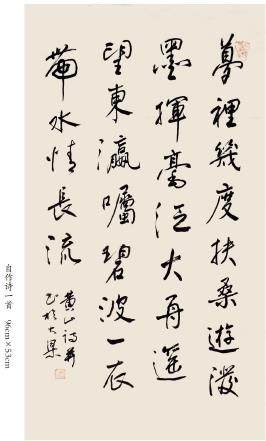 夢裡幾度扶桑遊潑
墨揮毫泛大再遥
望東瀛囑碧波一衣
帶水情長流
黄山詩并
书於大梁
自作诗一首 96cm×53cm